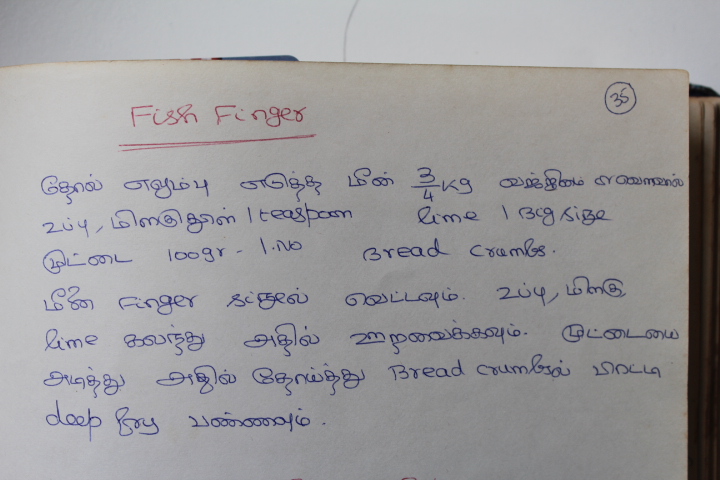 Fish Finger
35
தோல் எலும்பு எடுத்த மீன் 3/4 Kg
உப்பு, மிளகுதூள் 1 teaspoon lime 1 Big size
முட்டை 100gr - 1.no Bread crumbs.
மீனை Finger sizeல் வெட்டவும். உப்பு, மிளகு,
lime கலந்து அதில் ஊறவைக்கவும். முட்டையை
அடித்து அதில் தோய்த்து Bread crumbsல் பிரட்டி
deep fry பண்ணவும்.